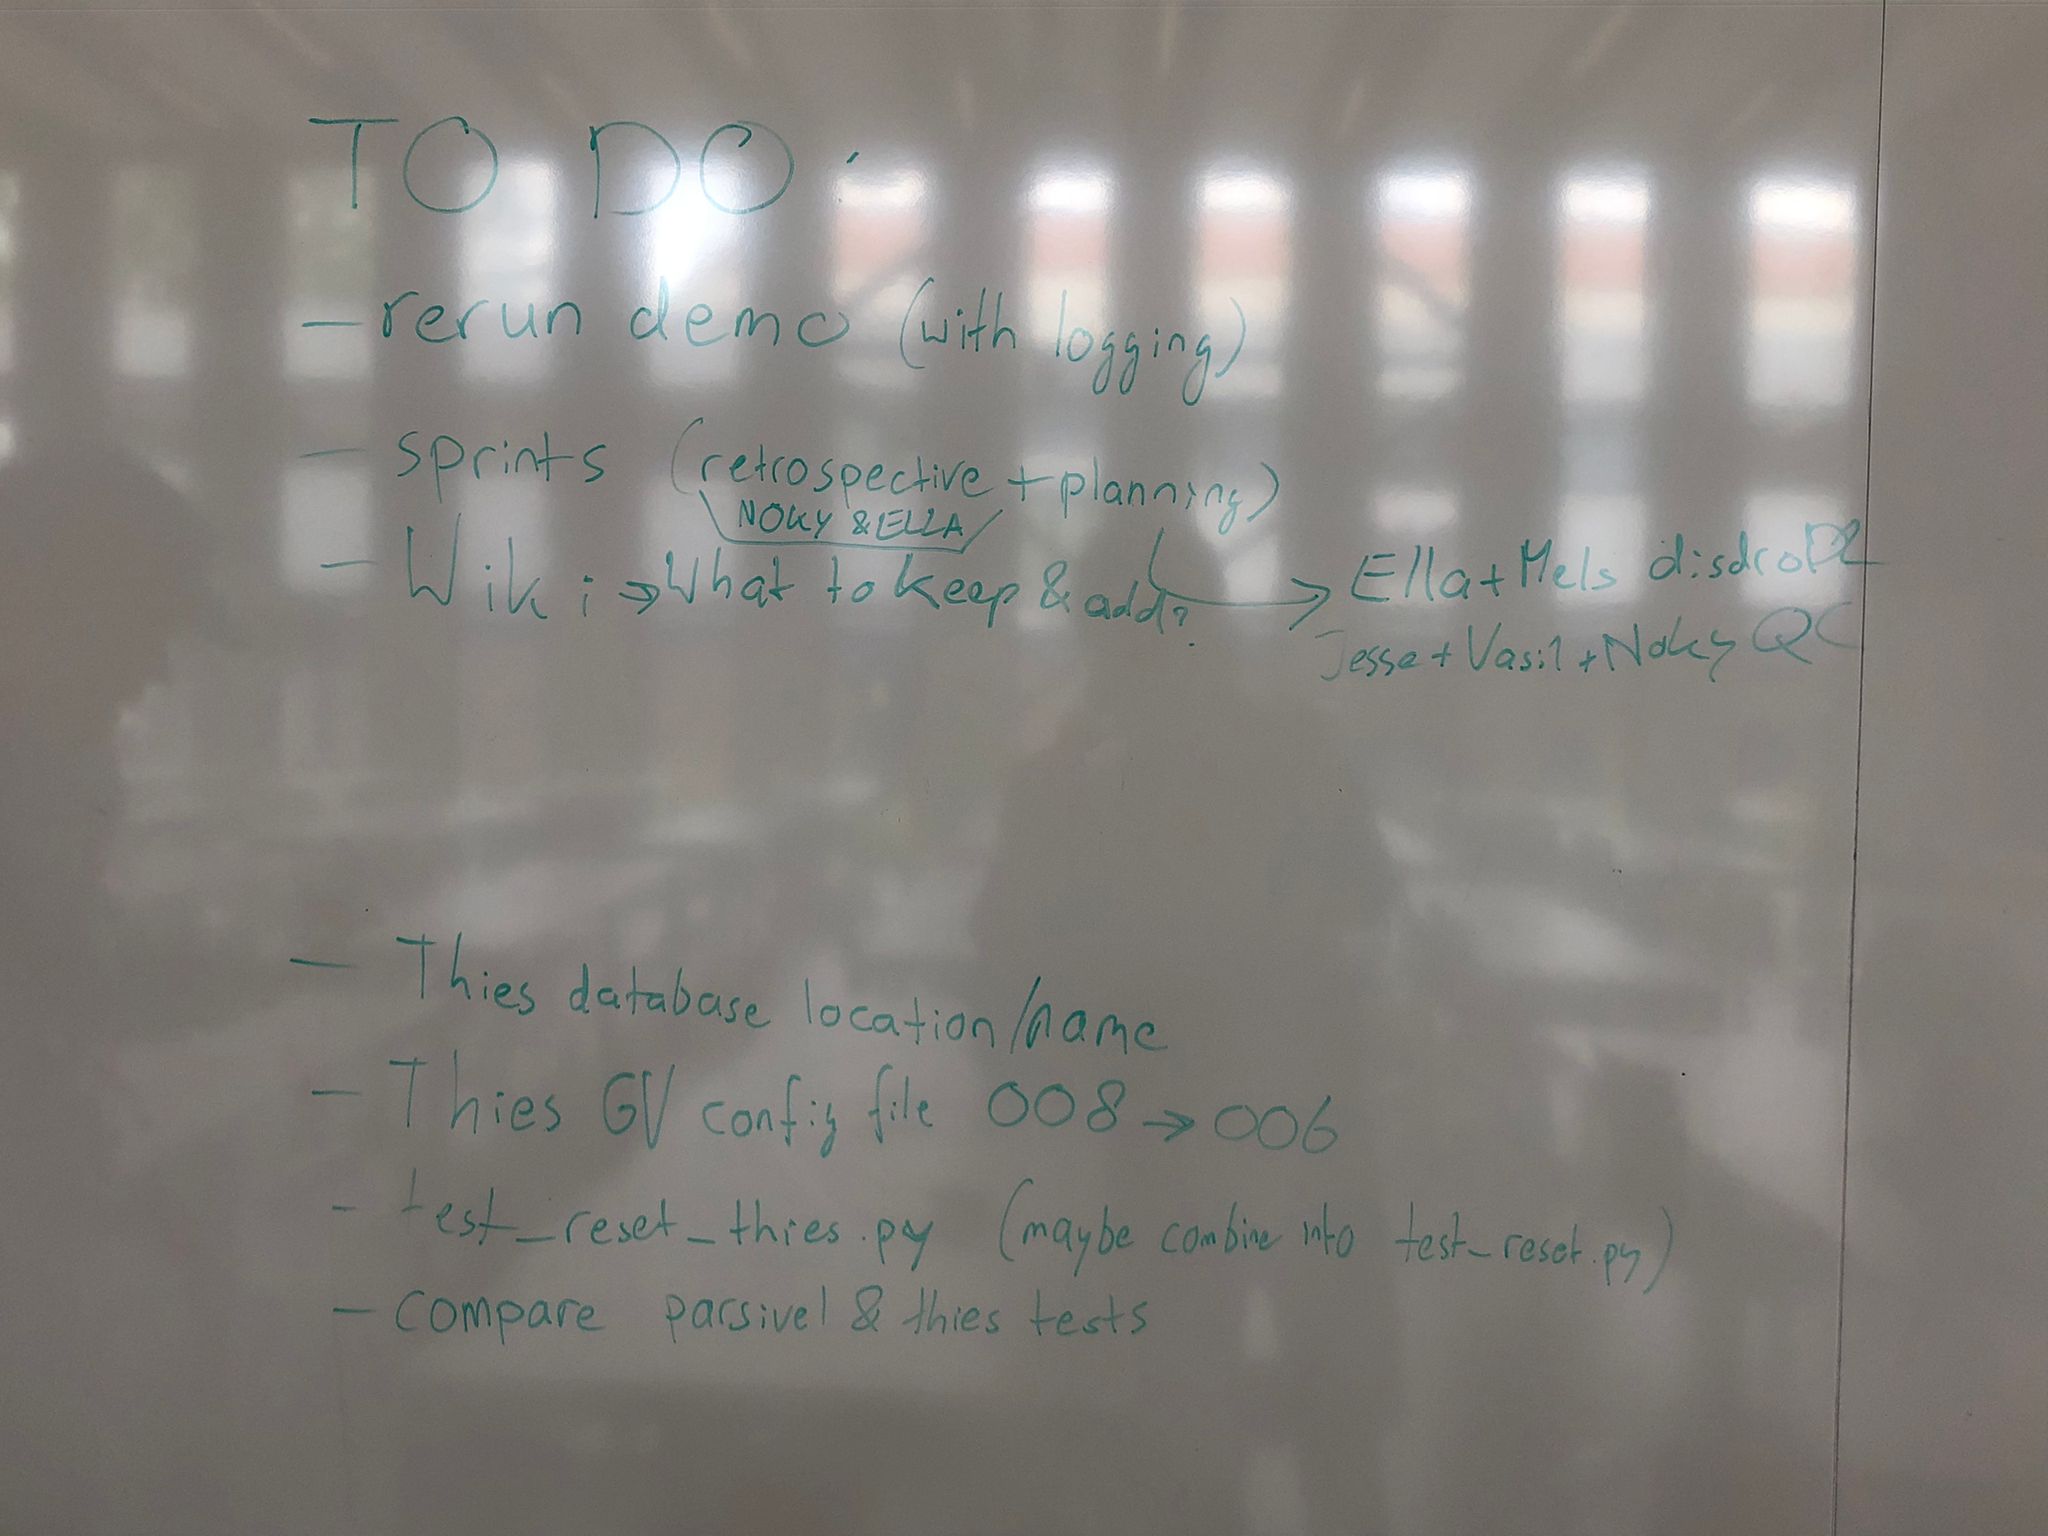 TO DO:
- rerun demo (with logging)
- sprints (retrospective + planning)
NOKY & ELLA
- Wiki → What to keep & add?
→ Ella + Mels disdroDL
Jesse + Vasil + Noky QC
- Thies database location/name
- Thies GV config file 008 → 006
- test_reset_thies.py (maybe combine into test_reset.py)
- compare parsivel & thies tests